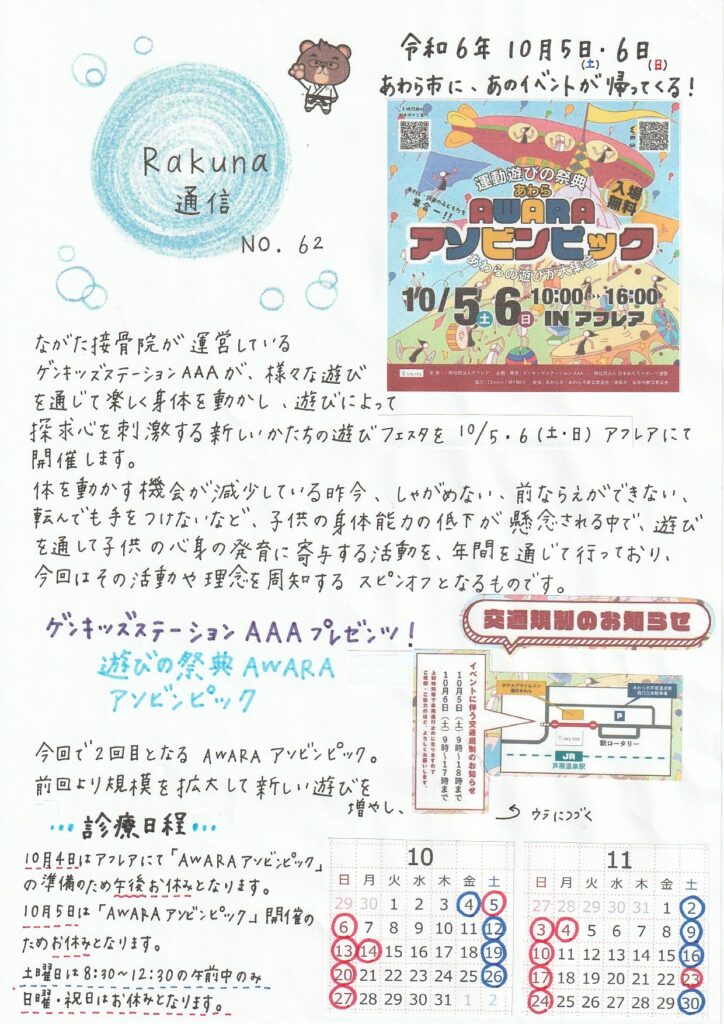 令和6年 10月5日・6日
(土) (日)
あわら市に、あのイベントが帰ってくる!
Rakuna
通信
NO. 62
運動遊びの祭典
あわら
集合ー!!
入場
無料
AWARA
アソビンピック
あわらの遊びが大集合
10/5土6日 10:00 16:00
IN アフレア
ながた接骨院が運営している
ゲンキッズステーションAAAが、様々な遊び
を通じて楽しく身体を動かし、遊びによって
探求心を刺激する新しいかたちの遊びフェスタを 10/5・6(土・日) アフレアにて
開催します。
体を動かす機会が減少している昨今、しゃがめない、前ならえができない、
転んでも手をつけないなど、子供の身体能力の低下が懸念される中で、遊び
を通して子供の心身の発育に寄与する活動を、年間を通じて行っており、
今回はその活動や理念を周知するスピンオフとなるものです。
ゲンキッズステーションAAAプレゼンツ!
遊びの祭典 AWARA
アソビンピック
交通規制のお知らせ
イベントに伴う交通規制のお知らせ
10月5日(土)9時〜18時まで
10月6日(土)9時〜17時まで
P
駅ロータリー
AFLARE
JR
芦原温泉駅
今回で2回目となる AWARA アソビンピック。
前回より規模を拡大して新しい遊びを
増やし、
ウラにつづく
…診療日程…
10月4日はアフレアにて「AWARAアソビンピック」
の準備のため午後お休みとなります。
10月5日は「AWARAアソビンピック」開催の
ためお休みとなります。
土曜日は8:30〜12:30の午前中のみ
日曜・祝日はお休みとなります。
10
日 月 火 水 木 金 土
29 30 1 2 3 4 5
6 7 8 9 10 11 12
13 14 15 16 17 18 19
20 21 22 23 24 25 26
27 28 29 30 31 1 2
11
日 月 火 水 木 金 土
27 28 29 30 31 1 2
3 4 5 6 7 8 9
10 11 12 13 14 15 16
17 18 19 20 21 22 23
24 25 26 27 28 29 30